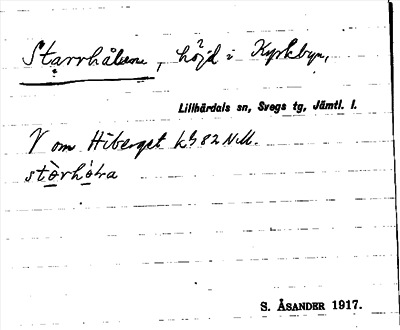 Starrhålorna, höjd i Kyrkbyn,
Lillhärdals sn, Svegs tg, Jämtl. l.
V om Hiberget kh 82 NM.
stòrhóra
S. ÅSANDER 1917.